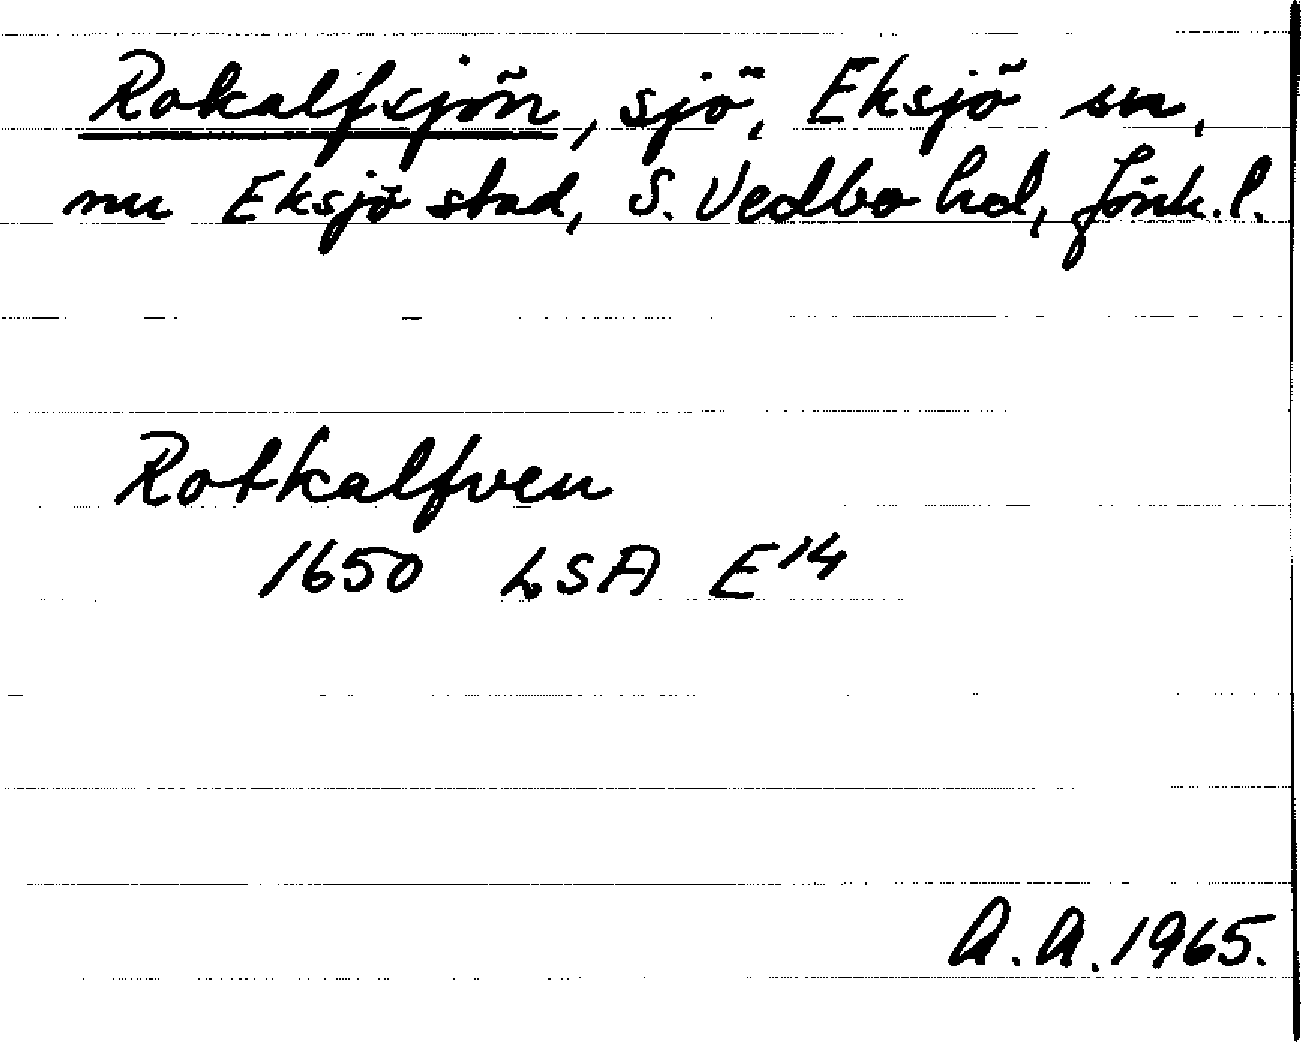 Rokalfsjön, sjö, Eksjö sn,
nu Eksjö stad, S. Vedbo hd, Jönk. l.
Rotkalfven
1650 LSA E14
A.A. 1965.